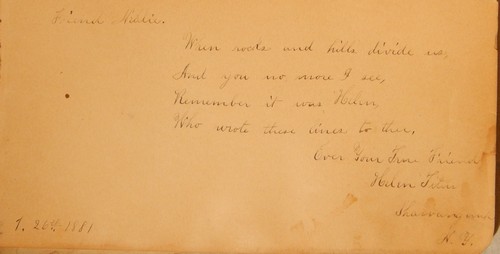 Friend Nellie.
When rocks and hills divide us,
And you no more I see,
Remember it was Helen,
Who wrote these lines to thee,
Ever Your True Friend
Helen
N. Y.
26th 1881